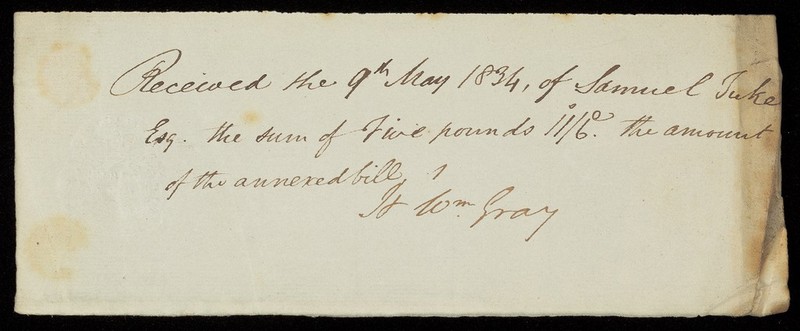 Received the 9th May 1834, of Samuel Tuke
Esq. the sum of Five pounds 11/6. the amount
of the annexed bill,
Wm. Gray